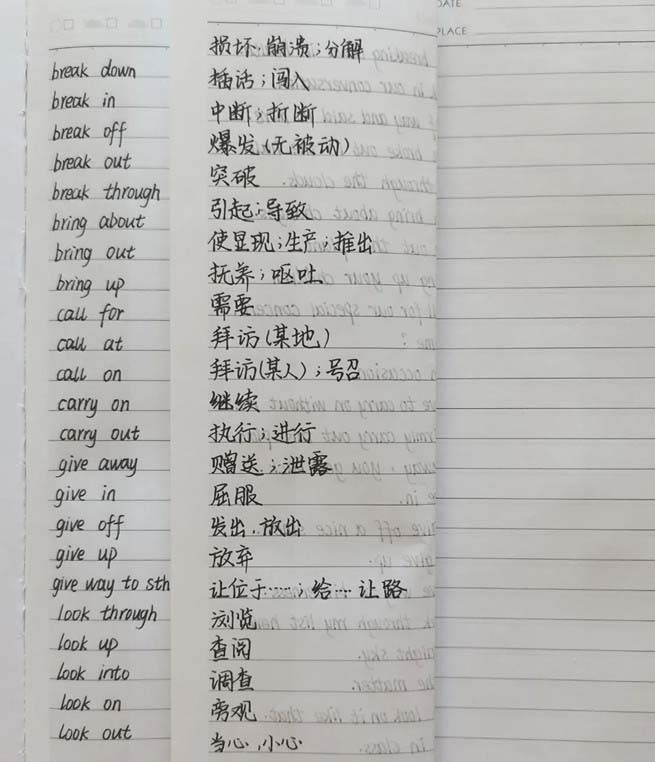 DATE
PLACE
break down 损坏;崩溃;分解
break in 插话;闯入
break off 中断;折断
break out 爆发(无被动)
break through 突破
bring about 引起;导致
bring out 使显现;生产;推出
bring up 抚养;呕吐
call for 需要
call at 拜访(某地)
call on 拜访(某人);号召
carry on 继续
carry out 执行;进行
give away 赠送;泄露
give in 屈服
give off 发出,放出
give up 放弃
give way to sth 让位于……;给…让路
look through 浏览
look up 查阅
look into 调查
look on 旁观
look out 当心,小心